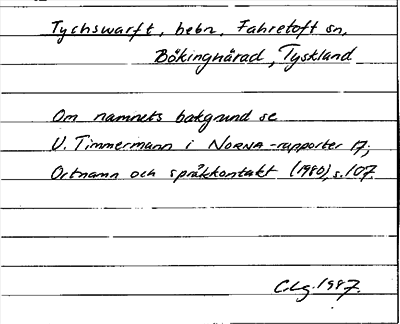 Tychswarft, bebn, Fahretoft sn,
Bökinghärad, Tyskland
Om namnets bakgrund se
U. Timmermann i NORNA-rapporter 17,
Ortnamn och språkkontakt (1980), s. 107.
CLg. 1987.